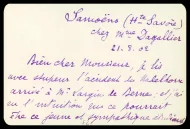 Samoëns (Hte Savoie)
chez Mme Dagallier
21.8.02
Bien cher Monsieur, je lis
avec stupeur l'accident du Wetterhorn
arrivé à Mr Largin de Berne, et j'ai
eu l'intuition que ce pourrait
être ce jeune et sympathique